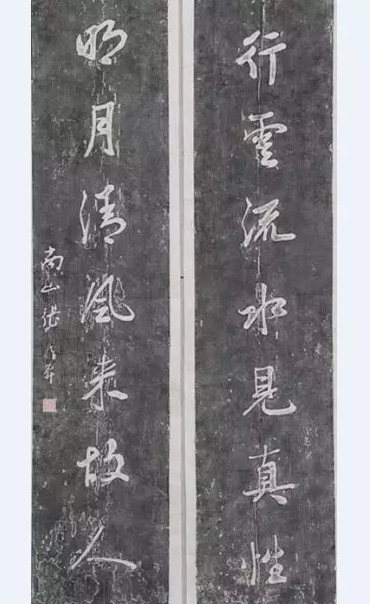 行雲流水見真性
明月清風来故人
南山張